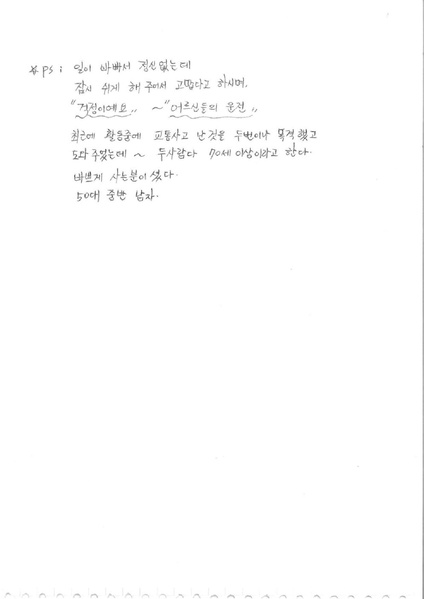 * PS : 일이 바빠서 정신없는데
잠시 쉬게 해 주어서 고맙다고 하시며,
"걱정이예요,, ~ "어르신들의 운전,,
최근에 활동중에 교통사고 난 것을 두번이나 목격했고
도와주었는데 ~ 두사람다 70세 이상이라고 한다.
바쁘게 사는분이셨다.
50대 중반 남자.